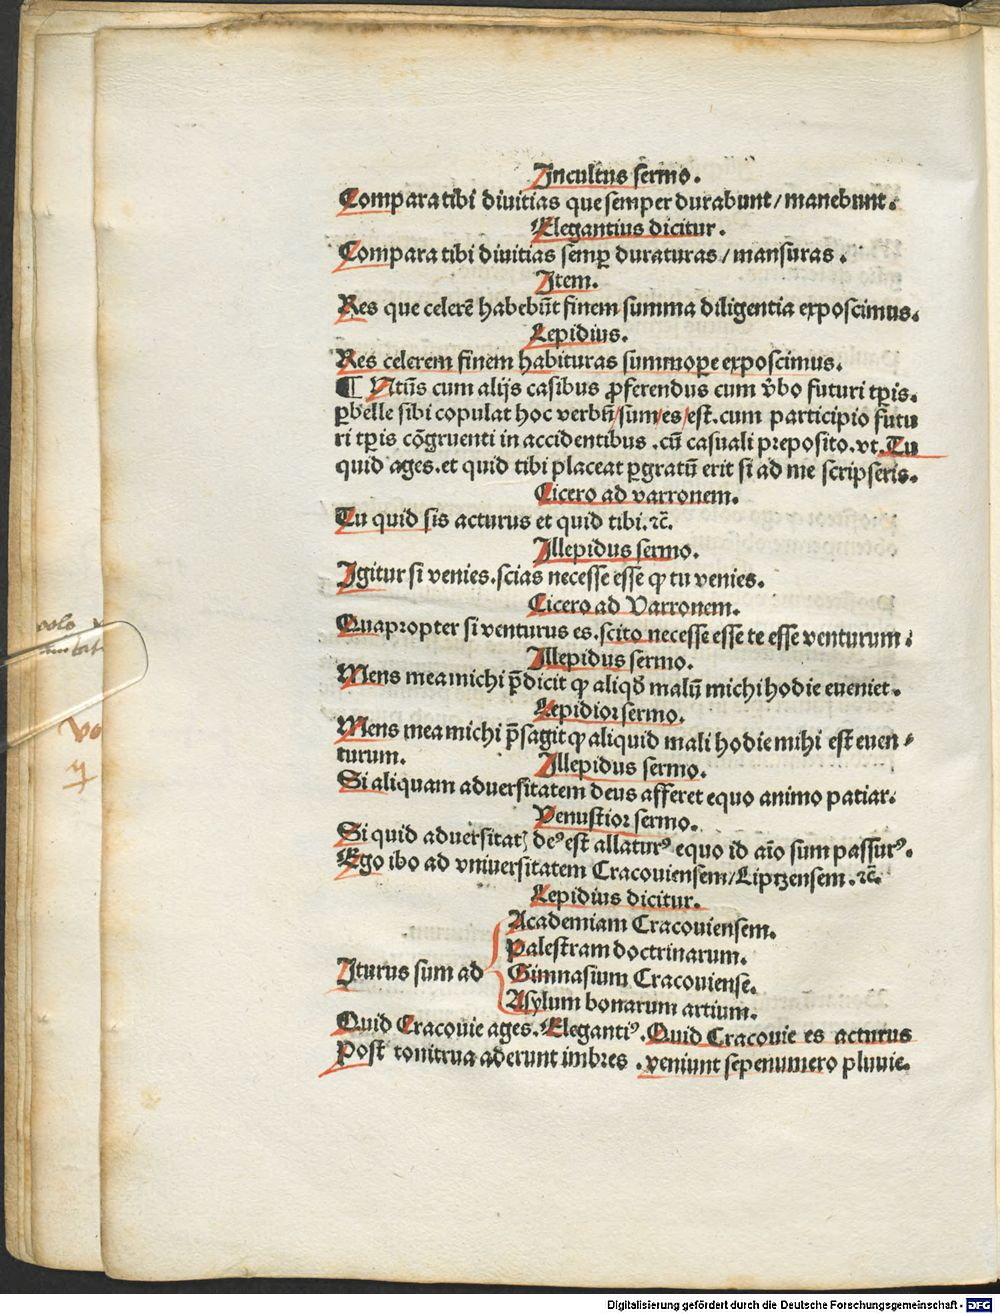 Incultus sermo.
Compara tibi diuitias que semper durabunt/manebunt.
Elegantius dicitur.
Compara tibi diuitias semꝑ duraturas/mansuras.
Item.
Res que celerē habebūt finem summa diligentia exposcimus.
Lepidius.
Res celerem finem habituras summoꝑe exposcimus.
¶ Ntūs cum alijs casibus ꝓferendus cum v̄bo futuri tꝑis.
ꝑbelle sibi copulat hoc verbū/sum/es/est.cum participio futu
ri tꝑis cōgruenti in accidentibus.cū casuali preposito.vt.Tu
quid ages.et quid tibi placeat ꝑgratū erit si ad me scripseris.
Cicero ad varronem.
Tu quid sis acturus et quid tibi.ꝛc̄.
Illepidus sermo.
Igitur si venies.scias necesse esse ꝙ tu venies.
Cicero ad Varronem.
Quapropter si venturus es.scito necesse esse te esse venturum:
Illepidus sermo.
Mens mea michi p̄dicit ꝙ aliqđ malū michi hodie eueniet.
Lepidior sermo.
Mens mea michi p̄sagit ꝙ aliquid mali hodie mihi est euen
turum.
Illepidus sermo.
Si aliquam aduersitatem deus afferet equo animo patiar.
Venustior sermo.
Si quid aduersitatꝭ deꝰ est allaturꝰ equo id aīo sum passurꝰ.
Ego ibo ad vniuersitatem Cracouiensem/Liptzensem.ꝛc̄.
Lepidius dicitur.
Iturus sum ad
Academiam Cracouiensem.
Palestram doctrinarum.
Gimnasium Cracouiense.
Asylum bonarum artium.
Quid Cracouie ages.Elegantiꝰ.Quid Cracouie es acturus
Post tonitrua aderunt imbres.veniunt sepenumero pluuie.
volo
vo
Digitalisierung gefördert durch die Deutsche Forschungsgemeinschaft - DFG